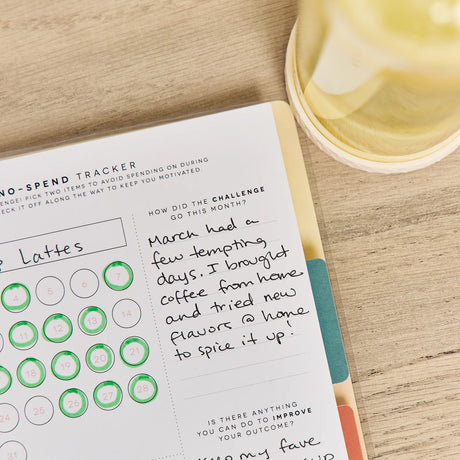 NO-SPEND TRACKER
ENGE! PICK TWO ITEMS TO AVOID SPENDING ON DURING
ECK IT OFF ALONG THE WAY TO KEEP YOU MOTIVATED.
Lattes
4 5 6 7
11 12 13 14
18 19 20 21
25 26 27 28
31
HOW DID THE CHALLENGE
GO THIS MONTH?
March had a
few tempting
days. I brought
coffee from home
and tried new
flavors @ home
to spice it up!
IS THERE ANYTHING
YOU CAN DO TO IMPROVE
YOUR OUTCOME?
my fave